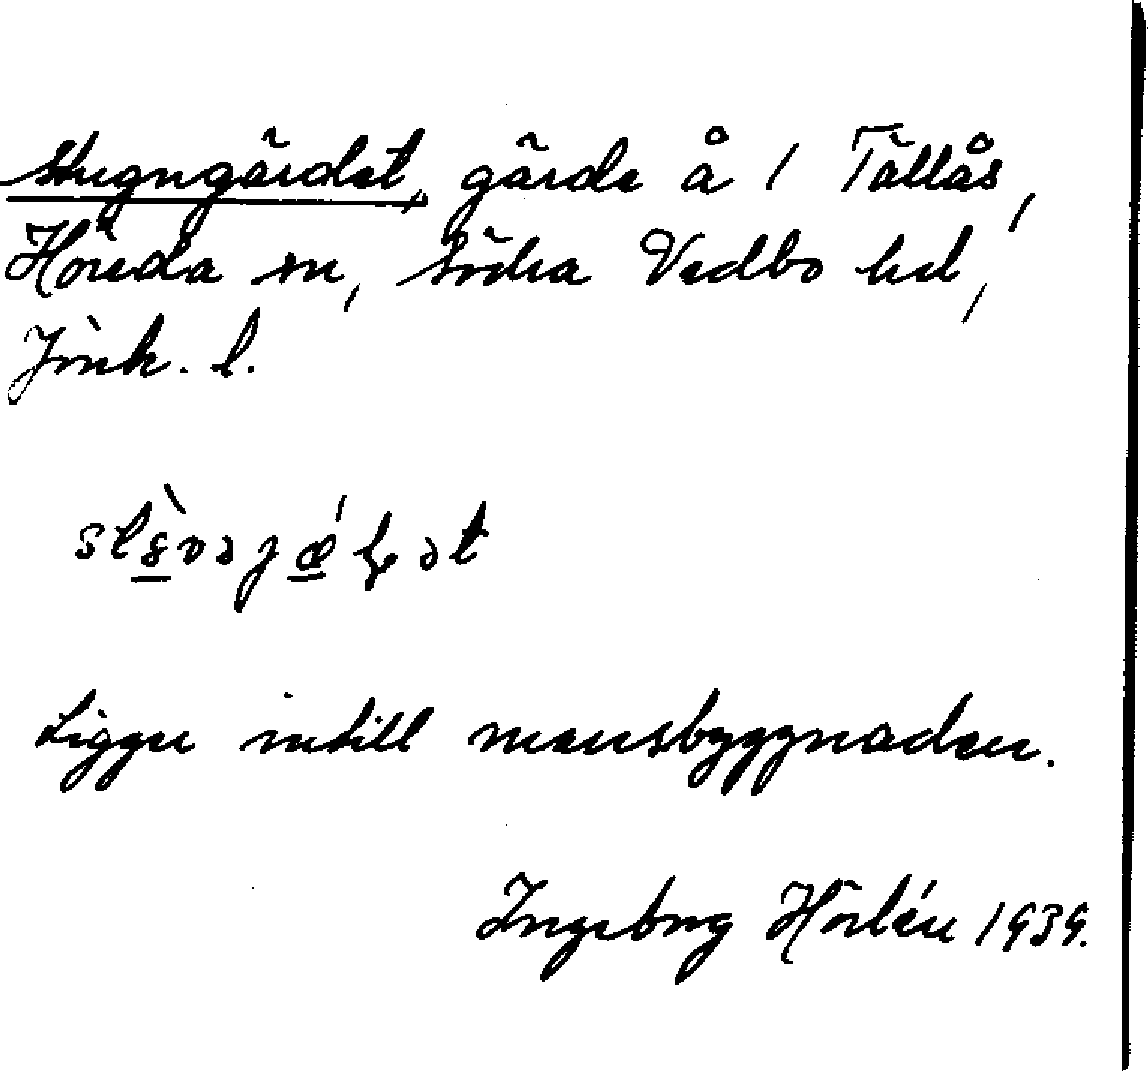 Stugngärdet, gärde å 1 Tällås,
Höreda sn, Södra Vedbo hd,
Jönk. l.
Ligger intill mansbyggnaden.
Ingeborg Hörlén 1939.